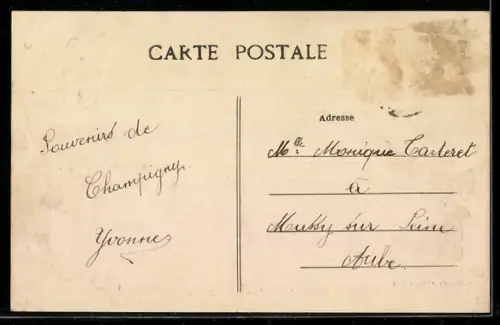 CARTE POSTALE
Adresse
Souvenirs de
Champigny
Yvonne
Mlle Monique Carteret
à
Mussy sur Seine
Aube